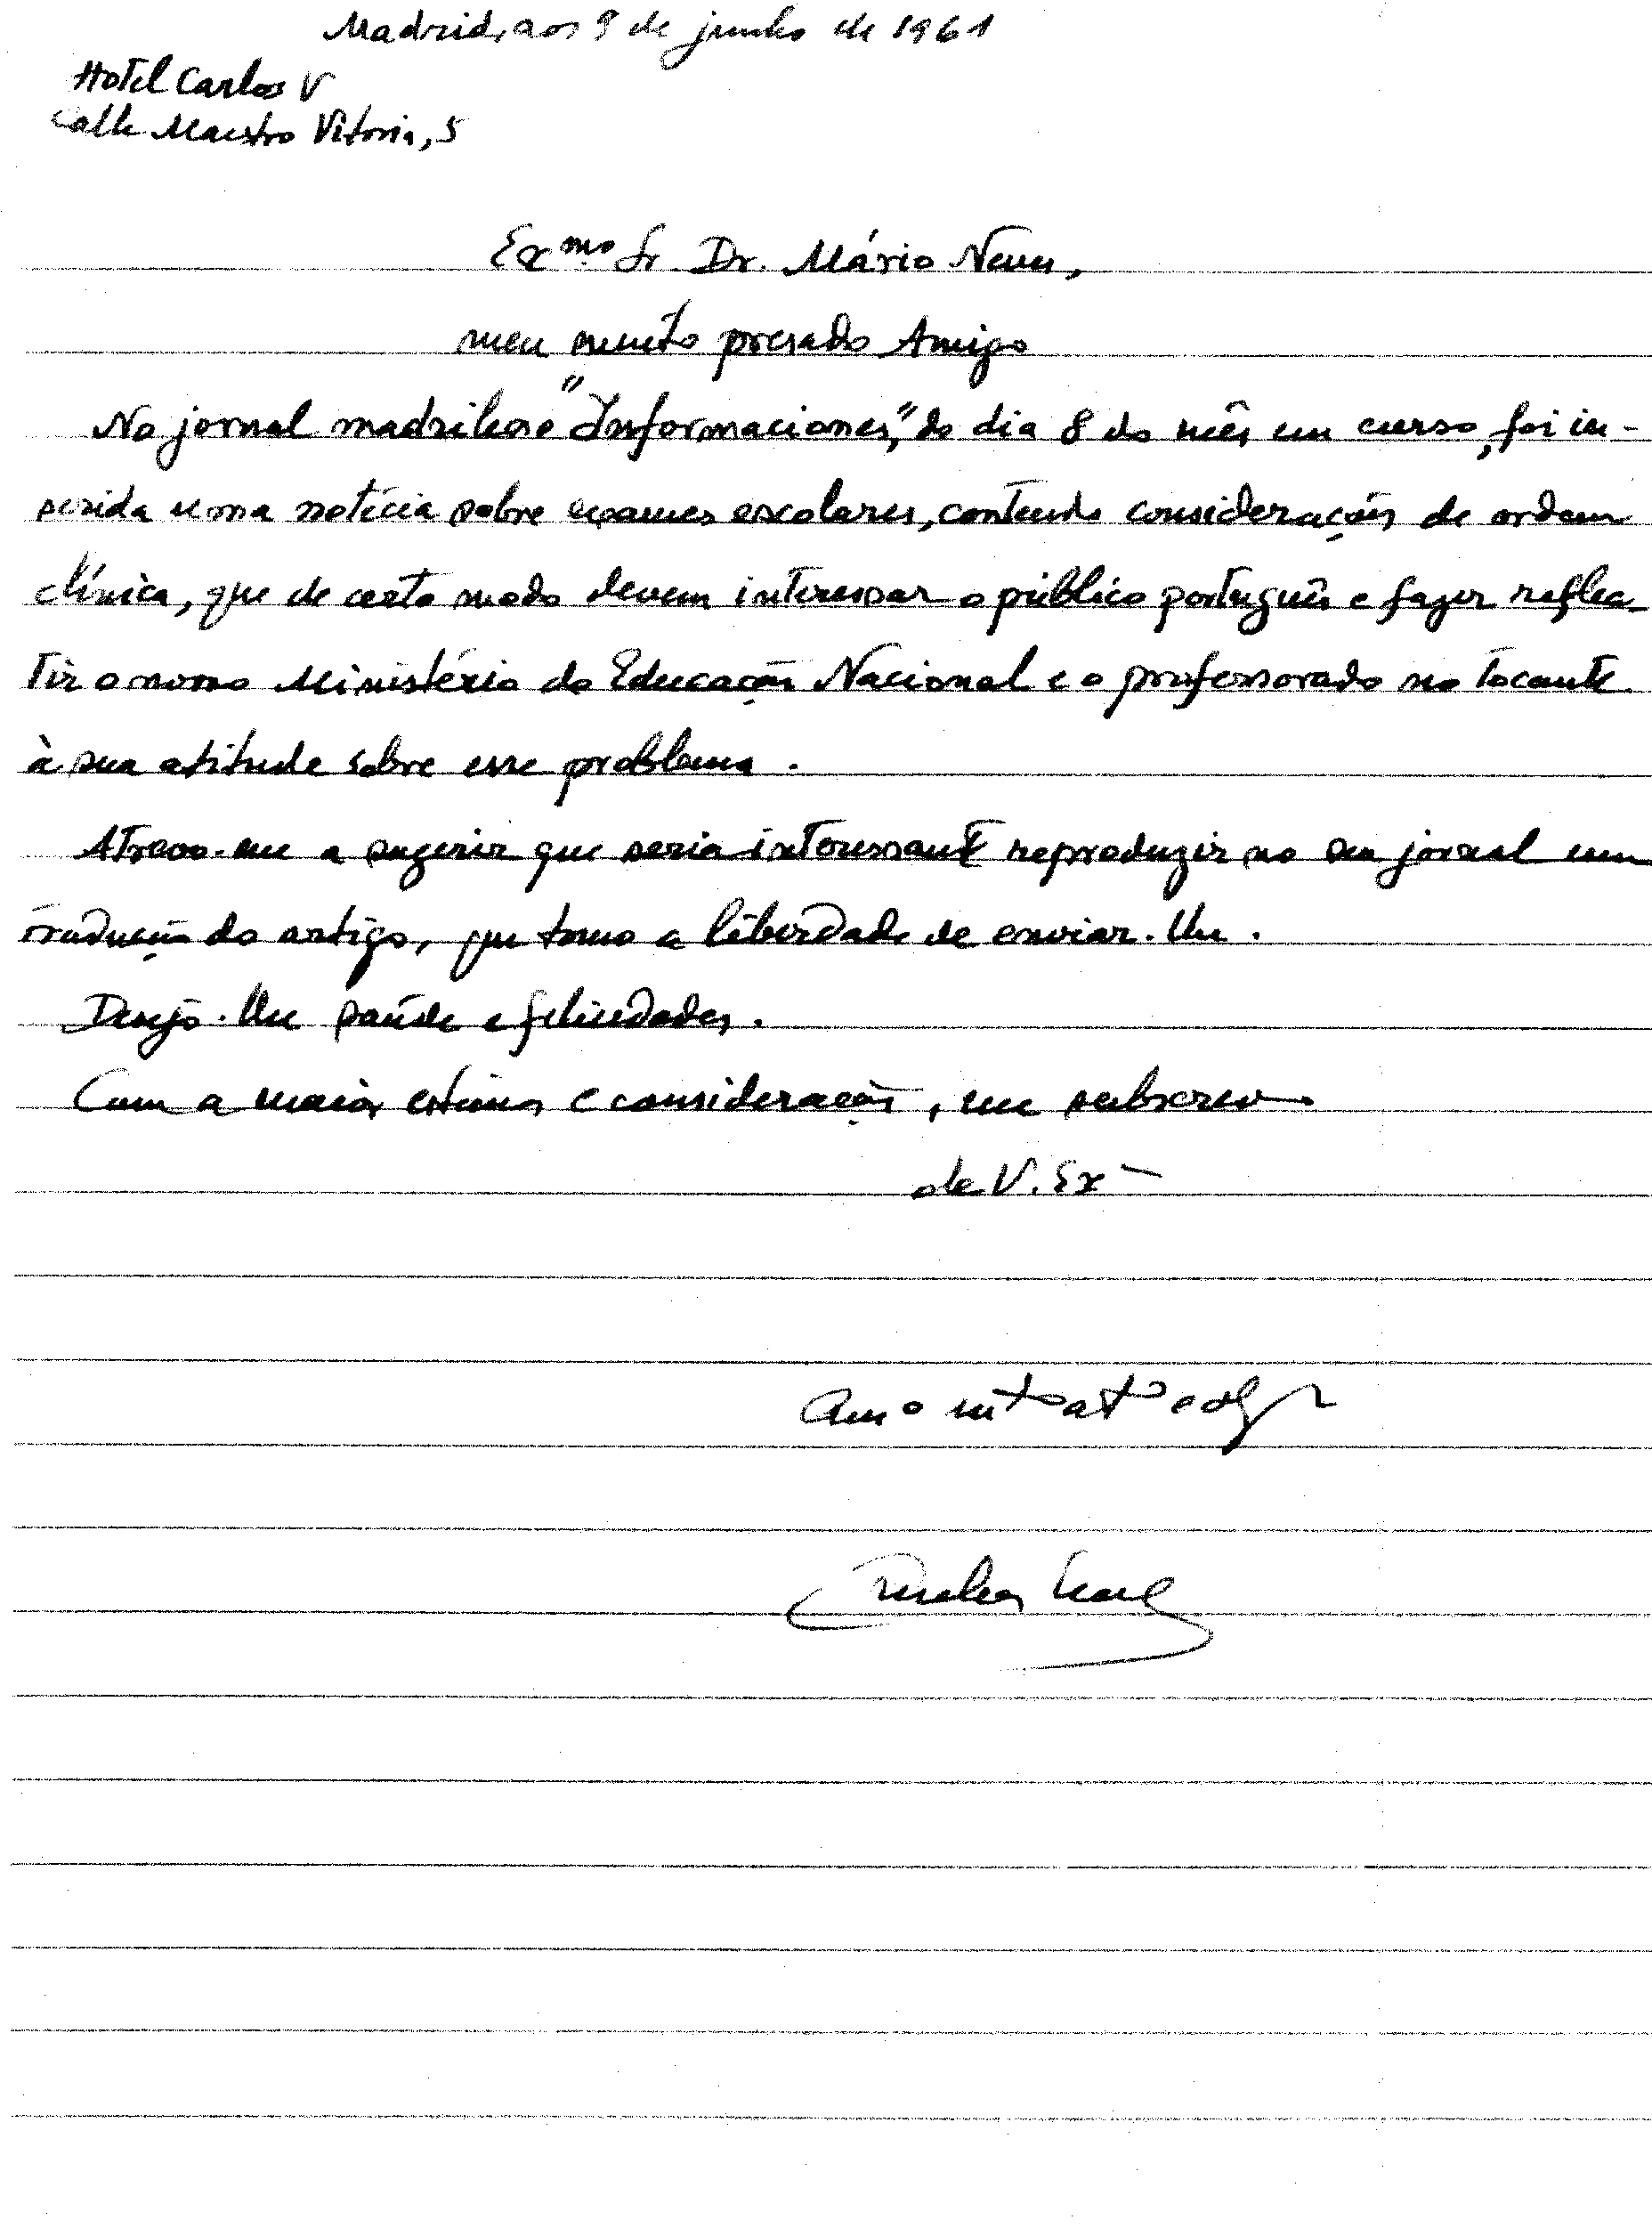 Madrid, aos 9 de junho de 1961
Hotel Carlos V
Calle Maestro Vitoria, 5
Exmo Sr Dr. Mário Neves,
meu muito presado Amigo
No jornal madrileno "Informaciones", do dia 8 do mês em curso, foi in-
serida uma notícia sobre exames escolares, contendo considerações de ordem
clínica, que de certo modo devem interessar o público português e fazer reflec-
tir o nosso Ministério da Educação Nacional e o professorado no tocante
à sua atitude sobre esse problema.
Atrevo-me a sugerir que seria interessante reproduzir no seu jornal uma
tradução do artigo, que tomo a liberdade de enviar-lhe.
Desejo-lhe saúde e felicidades.
Com a maior estima e consideração, me subscrevo
de V. Ex
Amo mto ato e